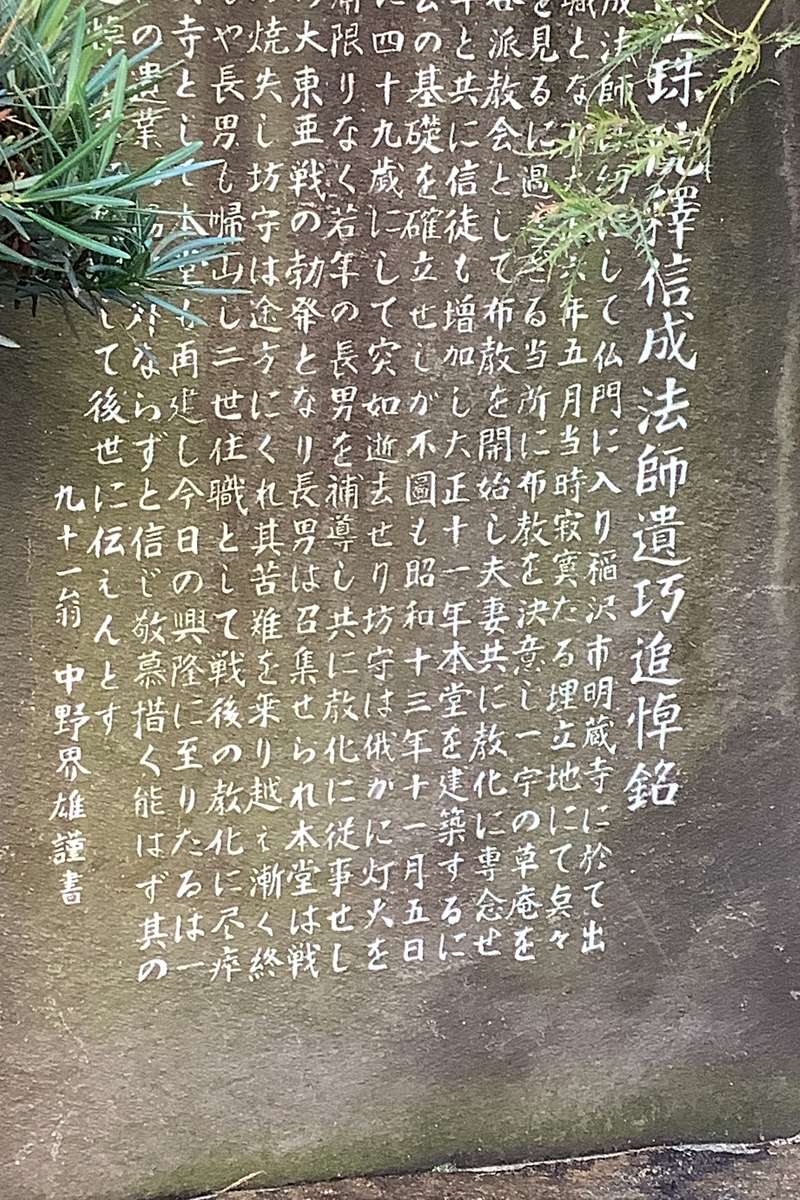 珠院釋信成法師遺巧追悼銘
成法師 して仏門に入り稲沢市明蔵寺に於て出
職とな 六年五月当時寂寞たる埋立地にて点々
を見るに過 ざる当所に布教を決意し一宇の草庵を
派教会として布教を開始し夫妻共に教化に専念せ
年と共に信徒も増加し大正十一年本堂を建築するに
の基礎を確立せしが不圖も昭和十三年十一月五日
に四十九歳にして突如逝去せり坊守は俄かに灯火を
限りなく若年の長男を補導し共に教化に従事せし
大東亜戦の勃発となり長男は召集せられ本堂は戦
焼失し坊守は途方にくれ其苦難を来り越え漸く終
や長男も帰山し二世住職として戦後の教化に尽瘁
寺として本堂も再建し今日の興隆に至りたるは一
の遺業の 外ならずと信じ敬慕措く能はず其の
して後世に伝えんとす
九十一翁 中野界雄謹書